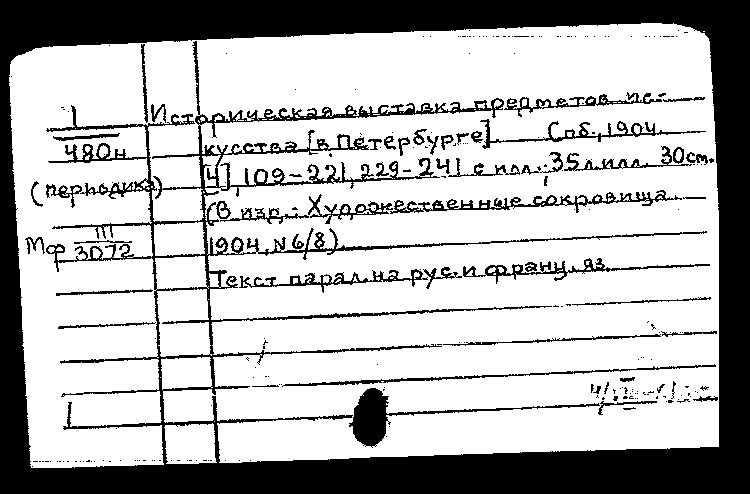 1
480н
(периодика)
III
Мф 3072
Историческая выставка предметов ис-
кусства [в Петербурге]. Спб., 1904.
[4], 109-221, 229-241 с илл.; 35 л. илл. 30 см.
(В изд.: Художественные сокровища
1904, N 6/8).
Текст парал. на рус. и франц. яз.
1